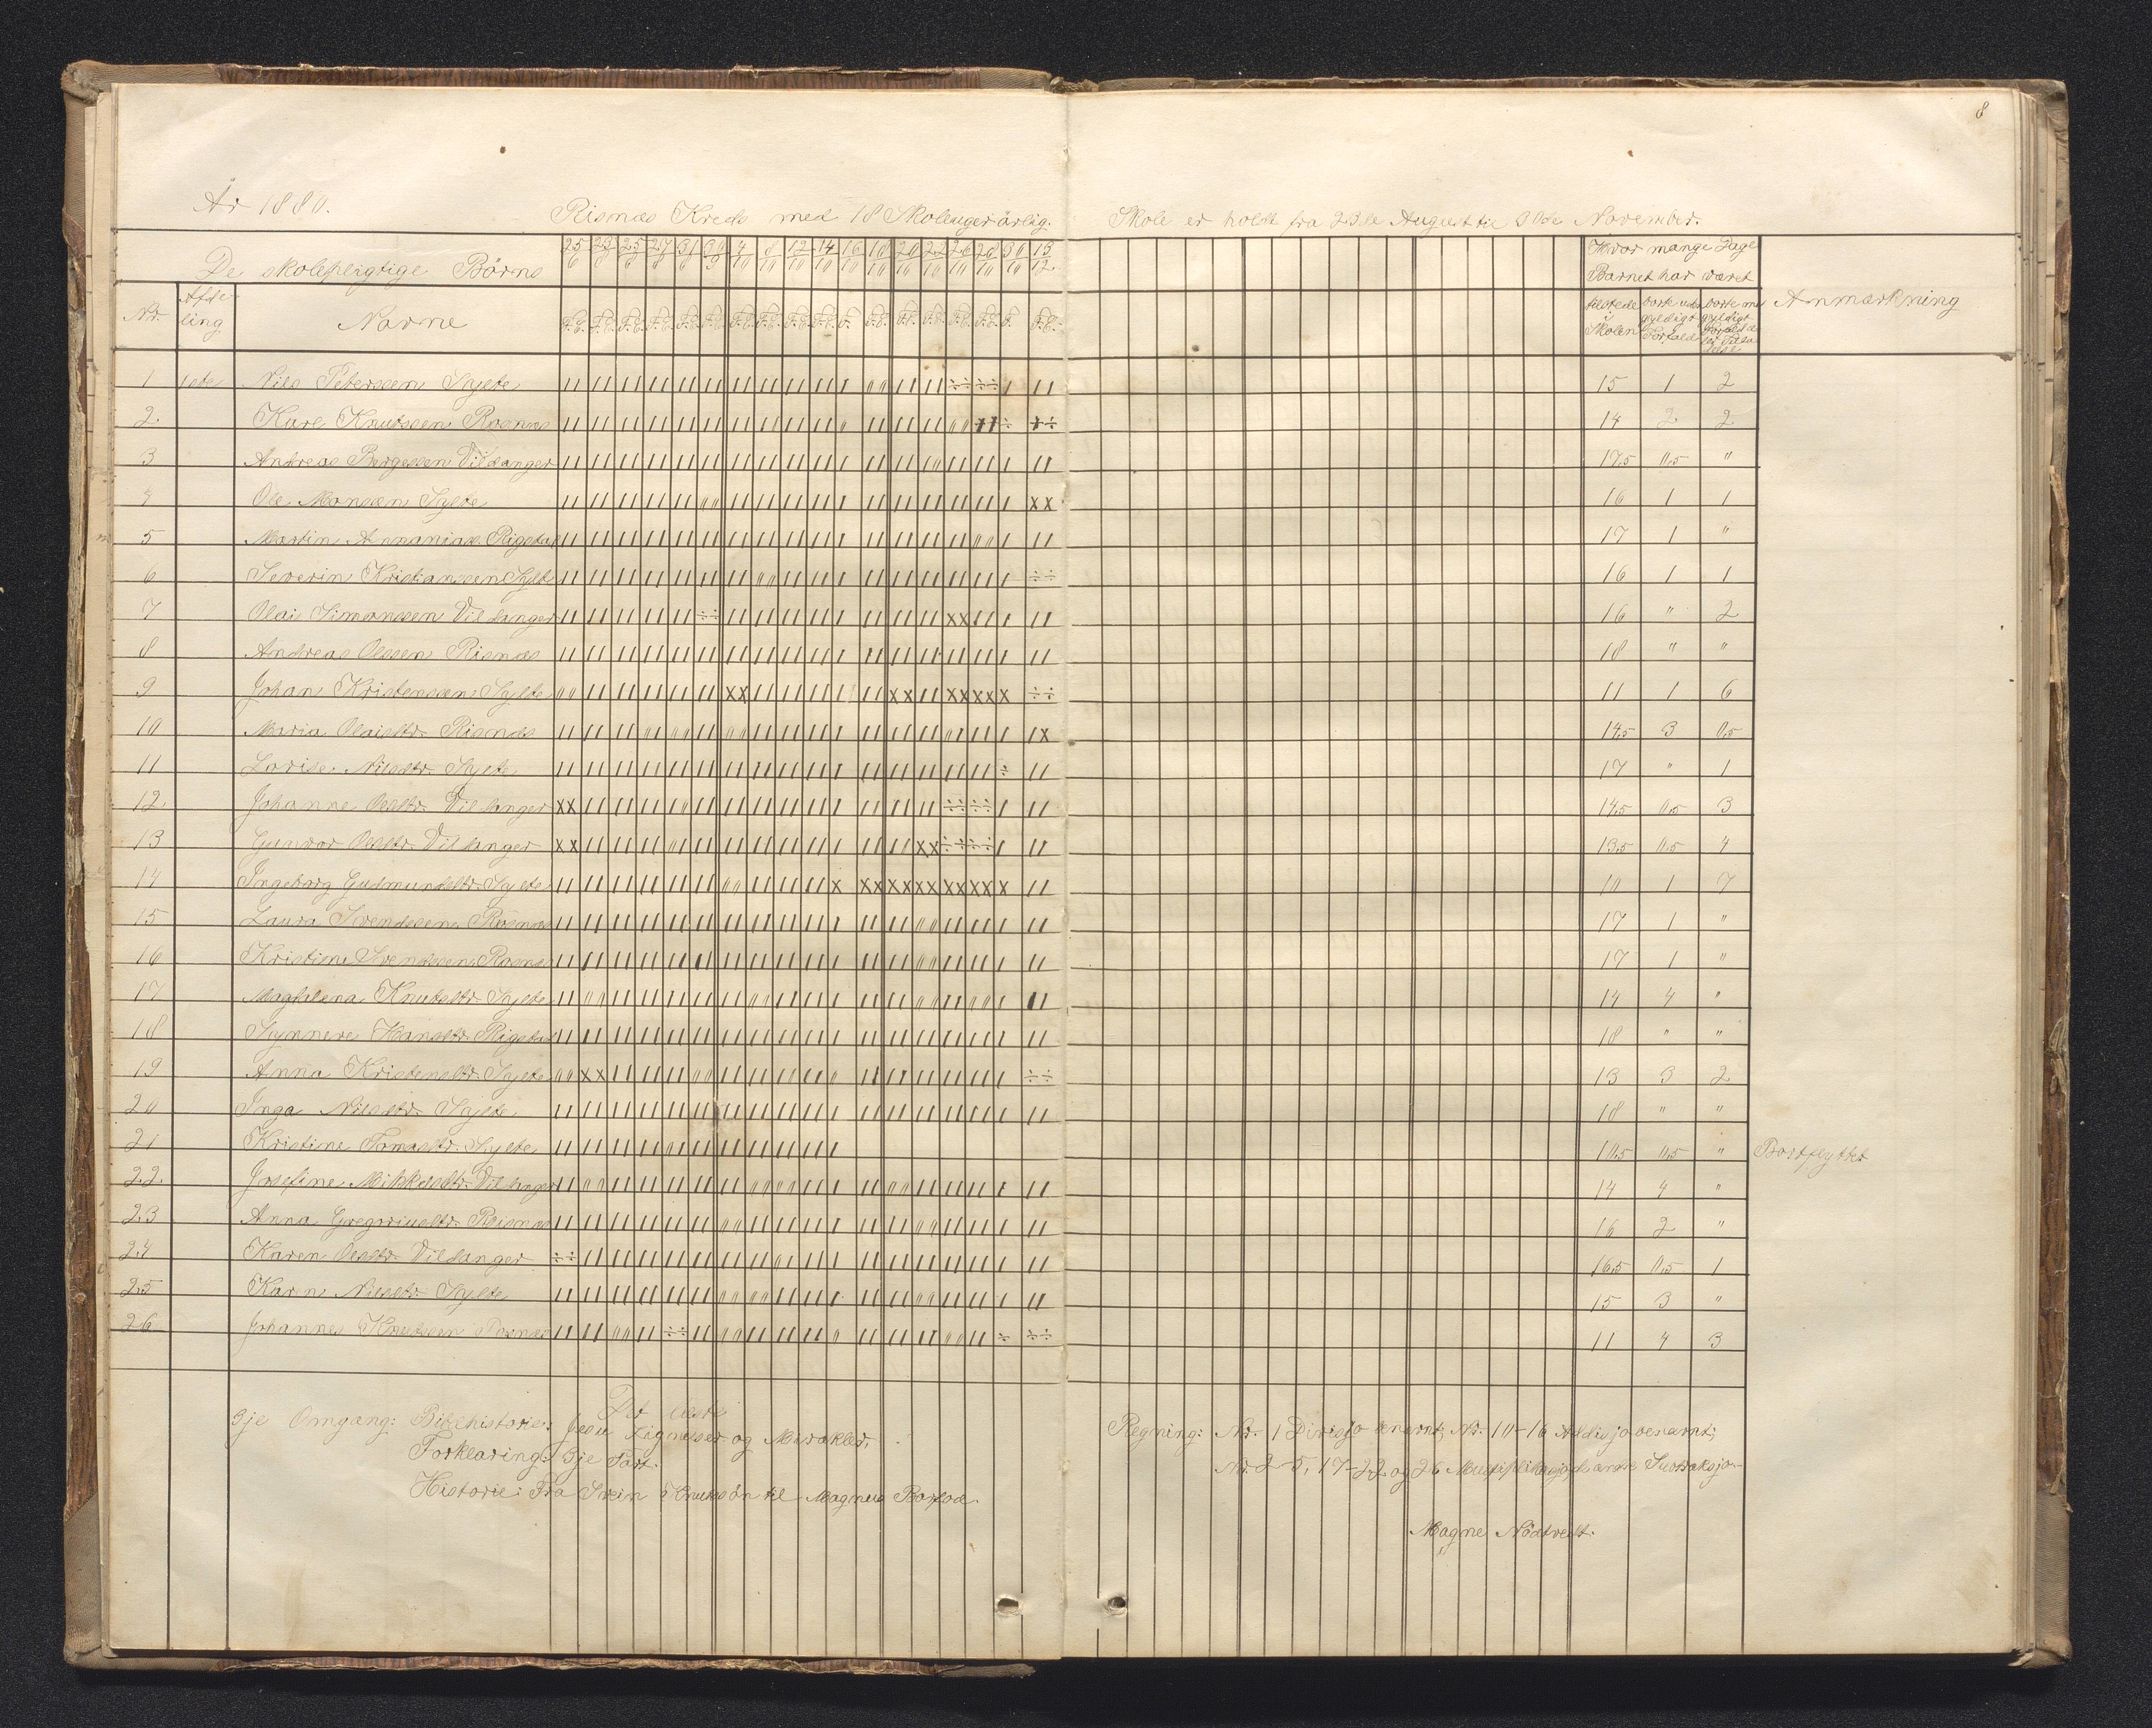 8
År 1880.
Risnæs Kreds med 18 Skoleuger årlig.
Skole er holdt fra 23de August til 30te November.
De skolepligtige Börns
25/6 23/8 25/8 27/8 31/8 30/9 4/10 8/10 12/10 14/10 16/10 18/10 20/10 22/10 26/10 28/10 30/10 13/12
Hvor mange Dage
Barnet har været
Nr. Afdeling Navne
F.E. F.E. F.E. F.E. F.E. F.E. F.E. F.E. F.E. F.E. F. F.E. F.E. F.E. F.E. F.E. F. F.E.
tilstede i Skolen
borte uden gyldigt Forfald
borte med gyldigt Forfald
Anmærkning
1 1ste Nils Petersen Sylte 15 1 2
2. Karl Knutssen Rosnæs 14 2 2
3 Andreas Børgessen Vildanger 17,5 0,5 "
4 Ole Monsen Sylte 16 1 1
5 Martin Annanias. Rigstad 17 1 "
6 Severin Kristianssen Sylte 16 1 1
7 Olai Simonssen Vildanger 16 " 2
8 Andreas Olssen Risnæs 18 " "
9 Johan Kristenssen Sylte 11 1 6
10 Maria Olaisdtr. Risnæs 14,5 3 0,5
11 Lovise Nilsdtr. Sylte 17 " 1
12. Johanne Olsdtr. Vildanger 14,5 0,5 3
13 Gunvor Olsdtr. Vildanger 13,5 0,5 4
14 Ingeborg Gudmundsdtr. Sylte 10 1 7
15 Laura Svendssen Rosnæs 17 1 "
16 Kristine Svendssen Rosnæs 17 1 "
17 Magdalena Knutsdtr. Sylte 14 4 "
18 Synneve Hansdtr. Rigstad 18 " "
19 Anna Kristensdtr. Sylte 13 3 2
20 Inga Nilsdtr. Sylte 18 " "
21 Kristine Tomasdtr. Sylte 10,5 0,5 " Bortflyttet
22. Josefine Mikkelsdtr. Vildanger 14 4 "
23 Anna Gregoriusdtr. Risnæs 16 2 "
24 Karen Olsdtr. Vildanger 16,5 0,5 1
25 Karn Nilsdtr. Sylte 15 3 "
26 Johannes Knutssen Rosnæs 11 4 3
3je Omgang: Bibelhistorie: Jesu Lignelser og Mirakler.
Forklaring: 3je Part.
Historie: Fra Svein Knutsön til Magnus Barfod.
Regning: Nr. 1 Division benævnt; Nr. 10-16 Addisjo benævnt;
Nr. 2-5, 17-22 og 26 Multiplikasjo, de andre Subtraksjo.
Magne Nödtvedt.